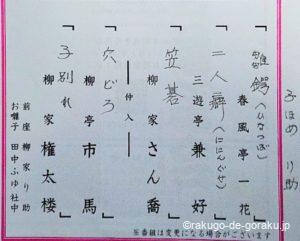 子ほめ り助
雛鍔(ひなつば)
春風亭一花
二人癖(ににんぐせ)
三遊亭兼好
笠碁
柳家さん喬
仲入
穴どろ
柳亭市馬
子別れ
柳家権太楼
前座 柳家り助
お囃子 田中ふゆ社中
※番組は変更になる場合がございます
©rakugo-de-goraku.jp